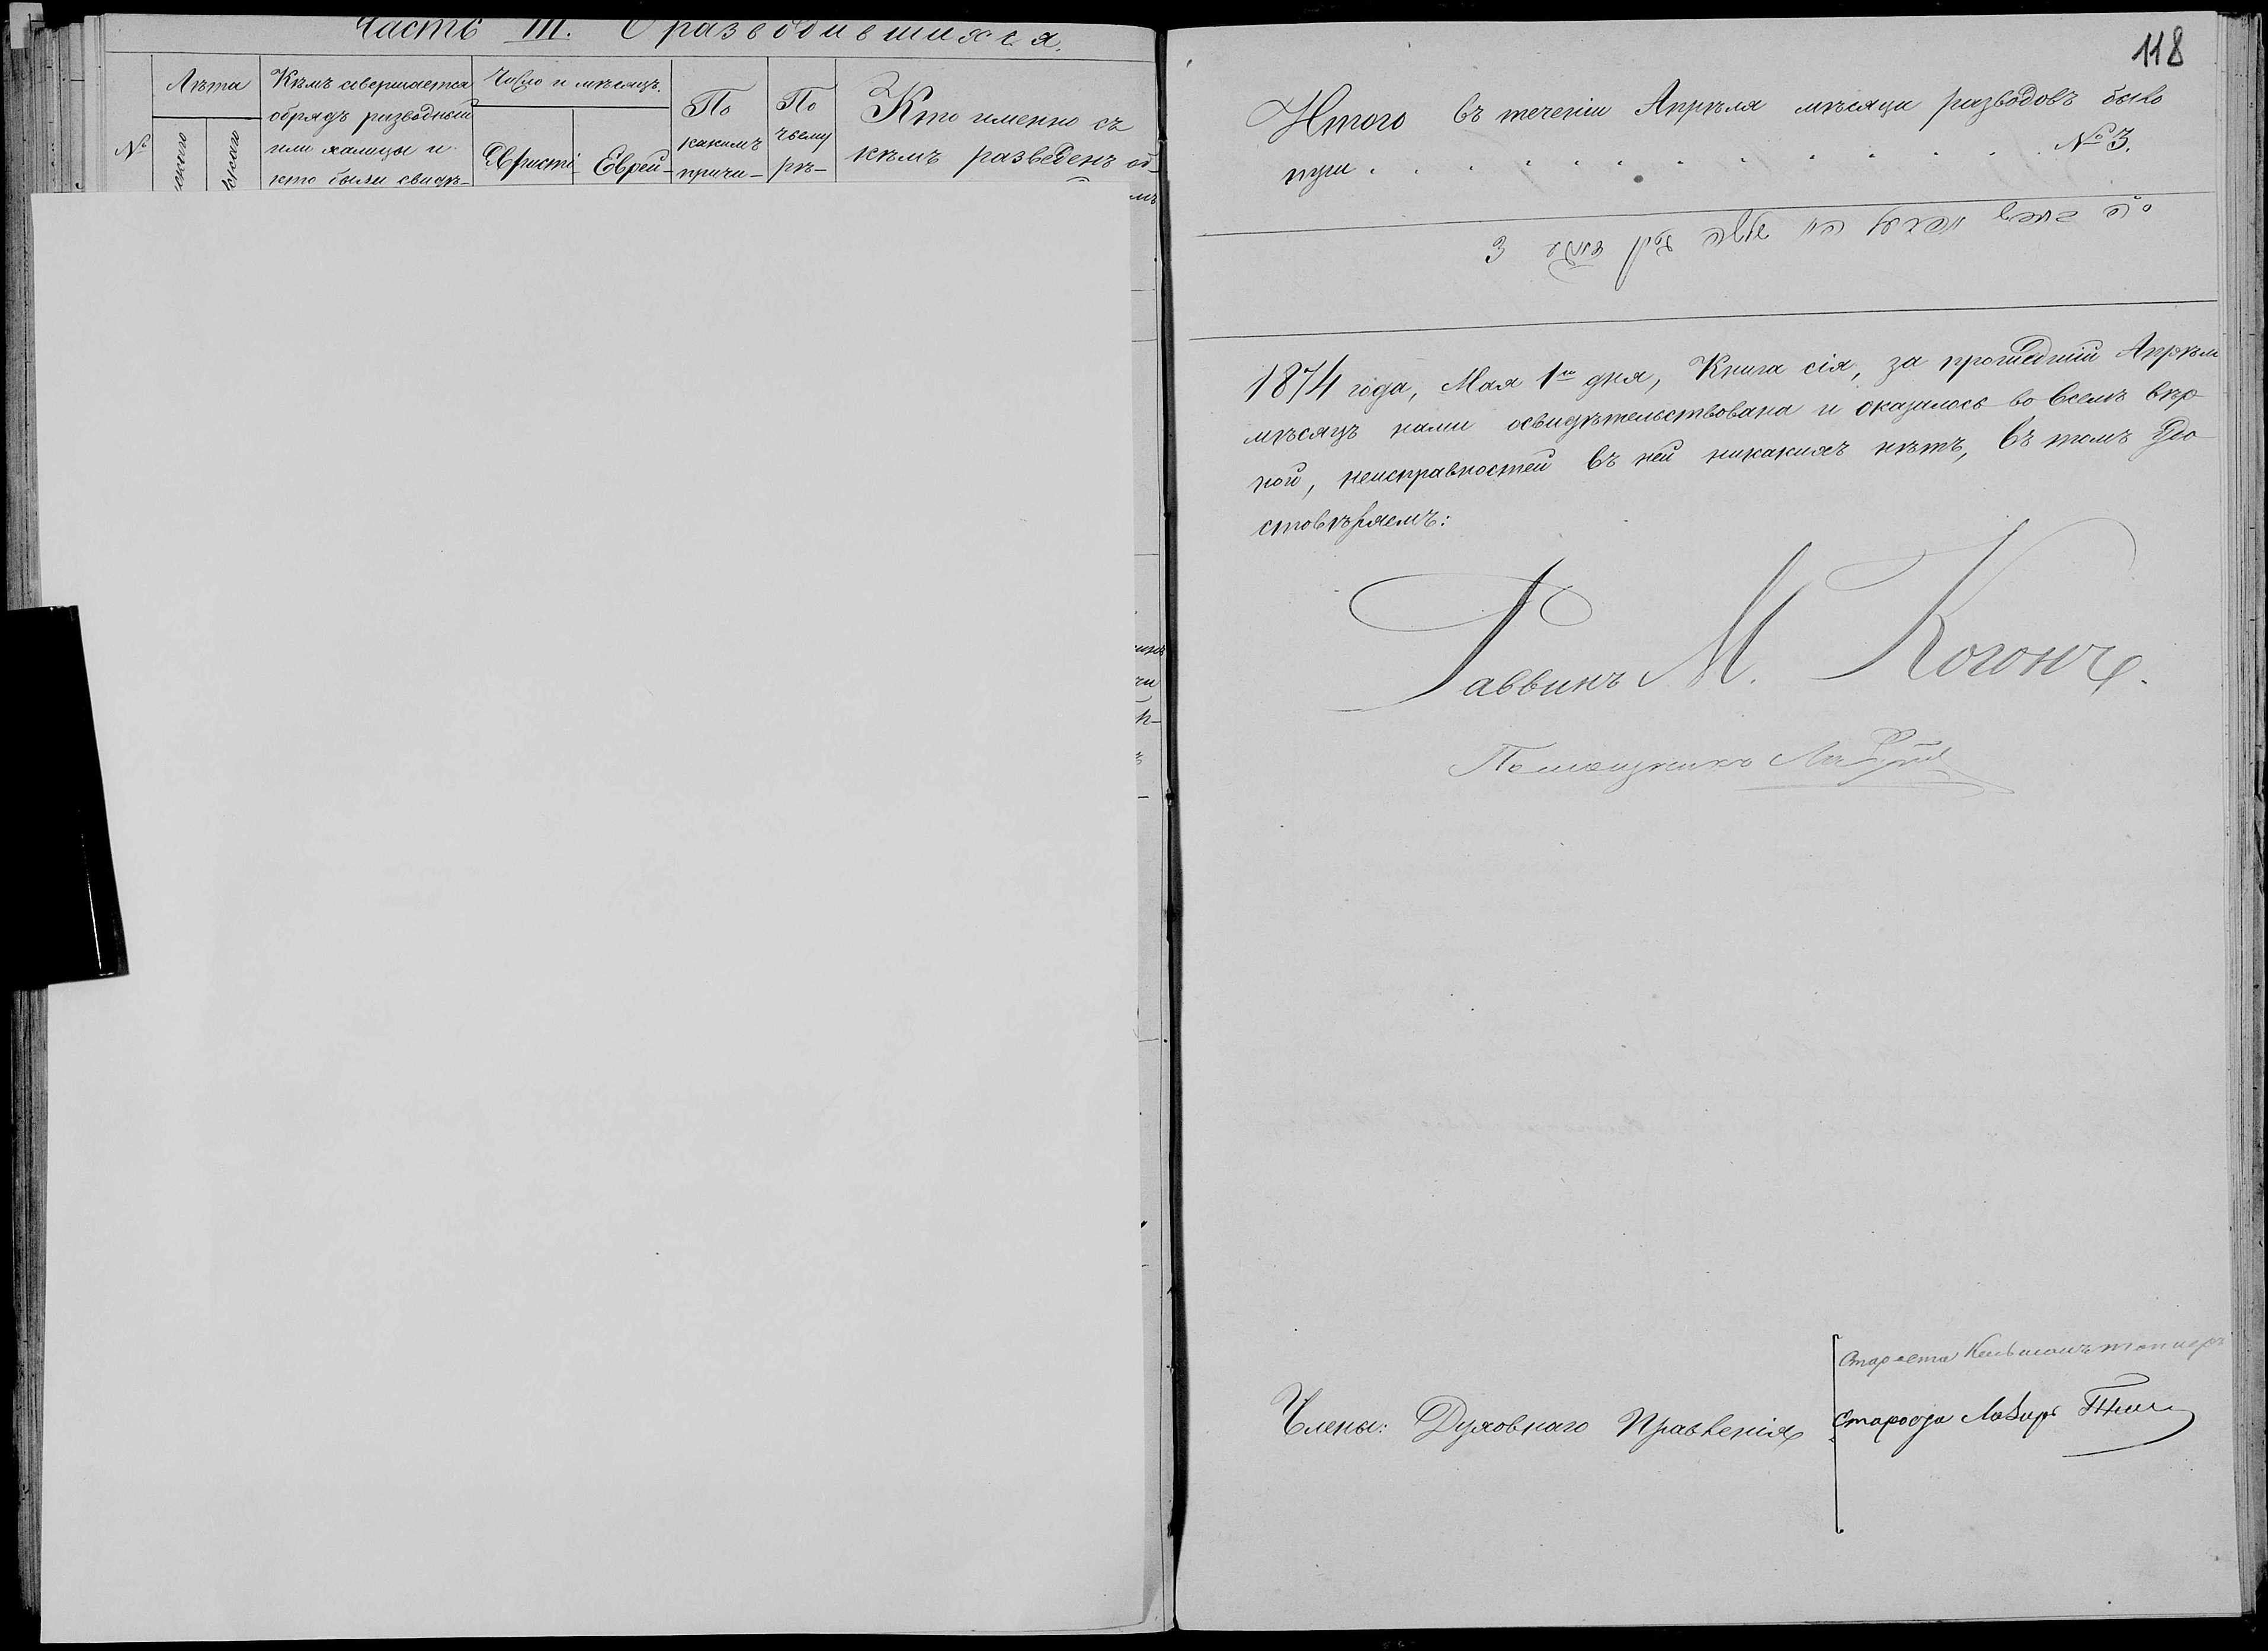 Часть III. О разводившихся.
№
Лѣта
Кѣмъ совершается
обрядъ разводный
или халицы и
кто были свидѣ-
Число и мѣсяцъ.
Христі-
Еврей-
По
какимъ
причи-
По
чьему
рѣ-
Кто именно съ
кѣмъ разведенъ об-
118
Итого въ теченіи Апрѣля мѣсяца разводовъ было
три . . . . . . . . . . . . № 3.
3
1874 года, Мая 1го дня, Книга сія, за прошедшій Апрѣль
мѣсяцъ нами освидѣтельствована и оказалось во всемъ вѣр-
ной, неисправностей въ ней никакихъ нѣтъ, въ томъ удо-
стовѣряемъ:
Раввинъ М. Когонъ.
Помощникъ
Члены: Духовнаго Правленія
Староста
Староста Лазарь